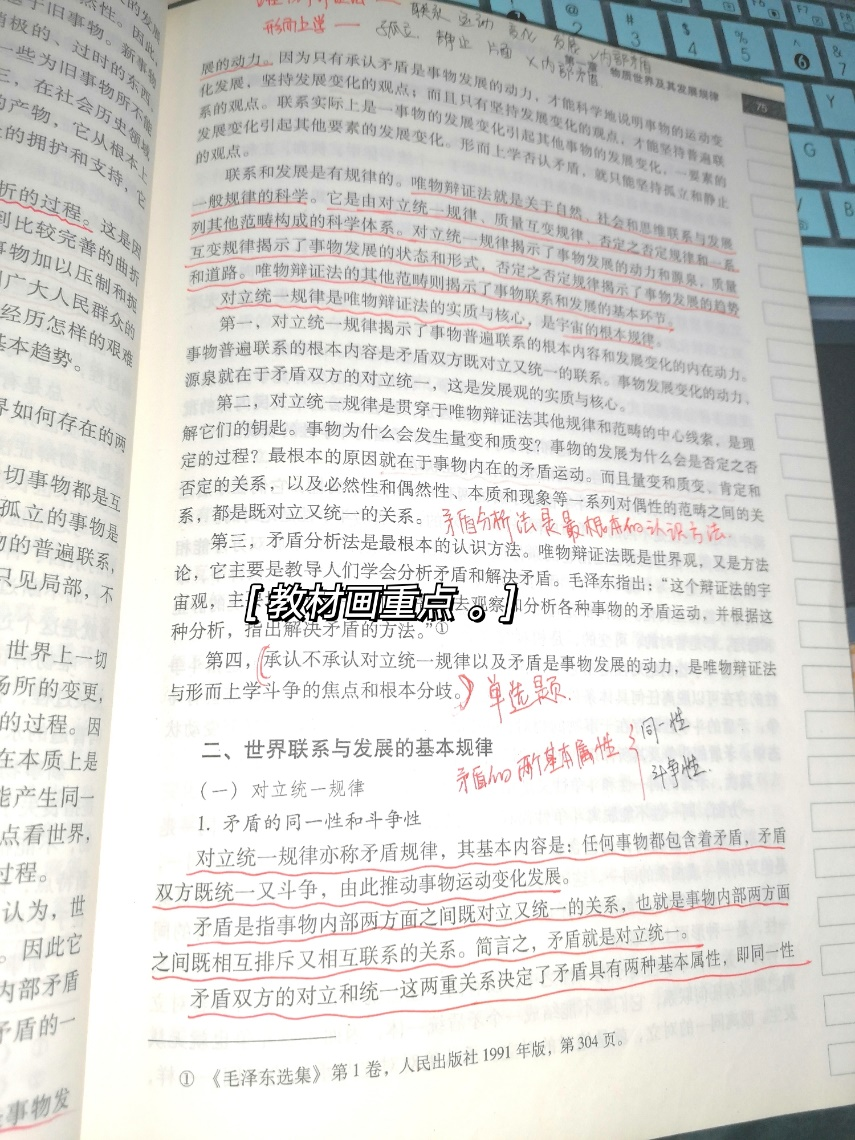 形而上学 — 孤立 静止 片面 ×内部矛盾
联系 运动 变化 发展 √内部矛盾
第一章 物质世界及其发展规律
75
展的动力。因为只有承认矛盾是事物发展的动力，才能科学地说明事物的运动变
化发展，坚持发展变化的观点；而且只有坚持发展变化的观点，才能坚持普遍联
系的观点。联系实际上是一事物的发展变化引起其他事物的发展变化，一要素的
发展变化引起其他要素的发展变化。形而上学否认矛盾，就只能坚持孤立和静止
的观点。
联系和发展是有规律的。唯物辩证法就是关于自然、社会和思维联系与发展
一般规律的科学。它是由对立统一规律、质量互变规律、否定之否定规律和一系
列其他范畴构成的科学体系。对立统一规律揭示了事物发展的动力和源泉，质量
互变规律揭示了事物发展的状态和形式，否定之否定规律揭示了事物发展的趋势
和道路。唯物辩证法的其他范畴则揭示了事物联系和发展的基本环节。
对立统一规律是唯物辩证法的实质与核心，是宇宙的根本规律。
第一，对立统一规律揭示了事物普遍联系的根本内容和发展变化的内在动力。
事物普遍联系的根本内容是矛盾双方既对立又统一的联系。事物发展变化的动力、
源泉就在于矛盾双方的对立统一，这是发展观的实质与核心。
第二，对立统一规律是贯穿于唯物辩证法其他规律和范畴的中心线索，是理
解它们的钥匙。事物为什么会发生量变和质变？事物的发展为什么会是否定之否
定的过程？最根本的原因就在于事物内在的矛盾运动。而且量变和质变、肯定和
否定的关系，以及必然性和偶然性、本质和现象等一系列对偶性的范畴之间的关
系，都是既对立又统一的关系。
矛盾分析法是最根本的认识方法.
第三，矛盾分析法是最根本的认识方法。唯物辩证法既是世界观，又是方法
论，它主要是教导人们学会分析矛盾和解决矛盾。毛泽东指出：“这个辩证法的宇
宙观，主 去观察和分析各种事物的矛盾运动，并根据这
[教材画重点。]
种分析，指出解决矛盾的方法。”①
第四，（承认不承认对立统一规律以及矛盾是事物发展的动力，是唯物辩证法
与形而上学斗争的焦点和根本分歧。）单选题.
二、世界联系与发展的基本规律
矛盾的两个基本属性 { 同一性
斗争性.
（一）对立统一规律
1. 矛盾的同一性和斗争性
对立统一规律亦称矛盾规律，其基本内容是：任何事物都包含着矛盾，矛盾
双方既统一又斗争，由此推动事物运动变化发展。
矛盾是指事物内部两方面之间既对立又统一的关系，也就是事物内部两方面
之间既相互排斥又相互联系的关系。简言之，矛盾就是对立统一。
矛盾双方的对立和统一这两重关系决定了矛盾具有两种基本属性，即同一性
① 《毛泽东选集》第1卷，人民出版社1991年版，第304页。
然性。因此，
于旧事物。
消极的、过时的东西。
一些为旧事物所不能
三，在社会历史领域
的产物，它从根本上
的拥护和支持，它
折的过程。这是因
到比较完善的曲折
事物加以压制和扼
广大人民群众的
经历怎样的艰难
基本趋势。
界如何存在的两
切事物都是互
孤立的事物是
物的普遍联系，
只见局部，不
世界上一切
场所的变更，
的过程。因
在本质上是
能产生同一
点看世界，
过程。
认为，世
。因此它
内部矛盾
矛盾的一
事物发